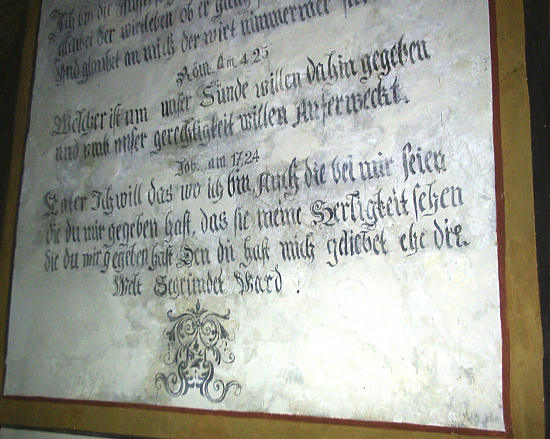 Ich bin die Aufer
glaubet der wirt leben ob er gleich
Und glaubet an mich der wirt nimmermer
Röm. am 4.25
Welcher ist um unser Sünde willen dahin gegeben
und umb unser gerechtigkeit willen Auferweckt.
Joh. am 17,24
Vater Ich will das wo ich bin, Auch die bei mir seien
die du mir gegeben hast, das sie meine Herligkeit sehen
die du mir gegeben hast Den du hast mich geliebet ehe die.
Welt Gegründet Ward .